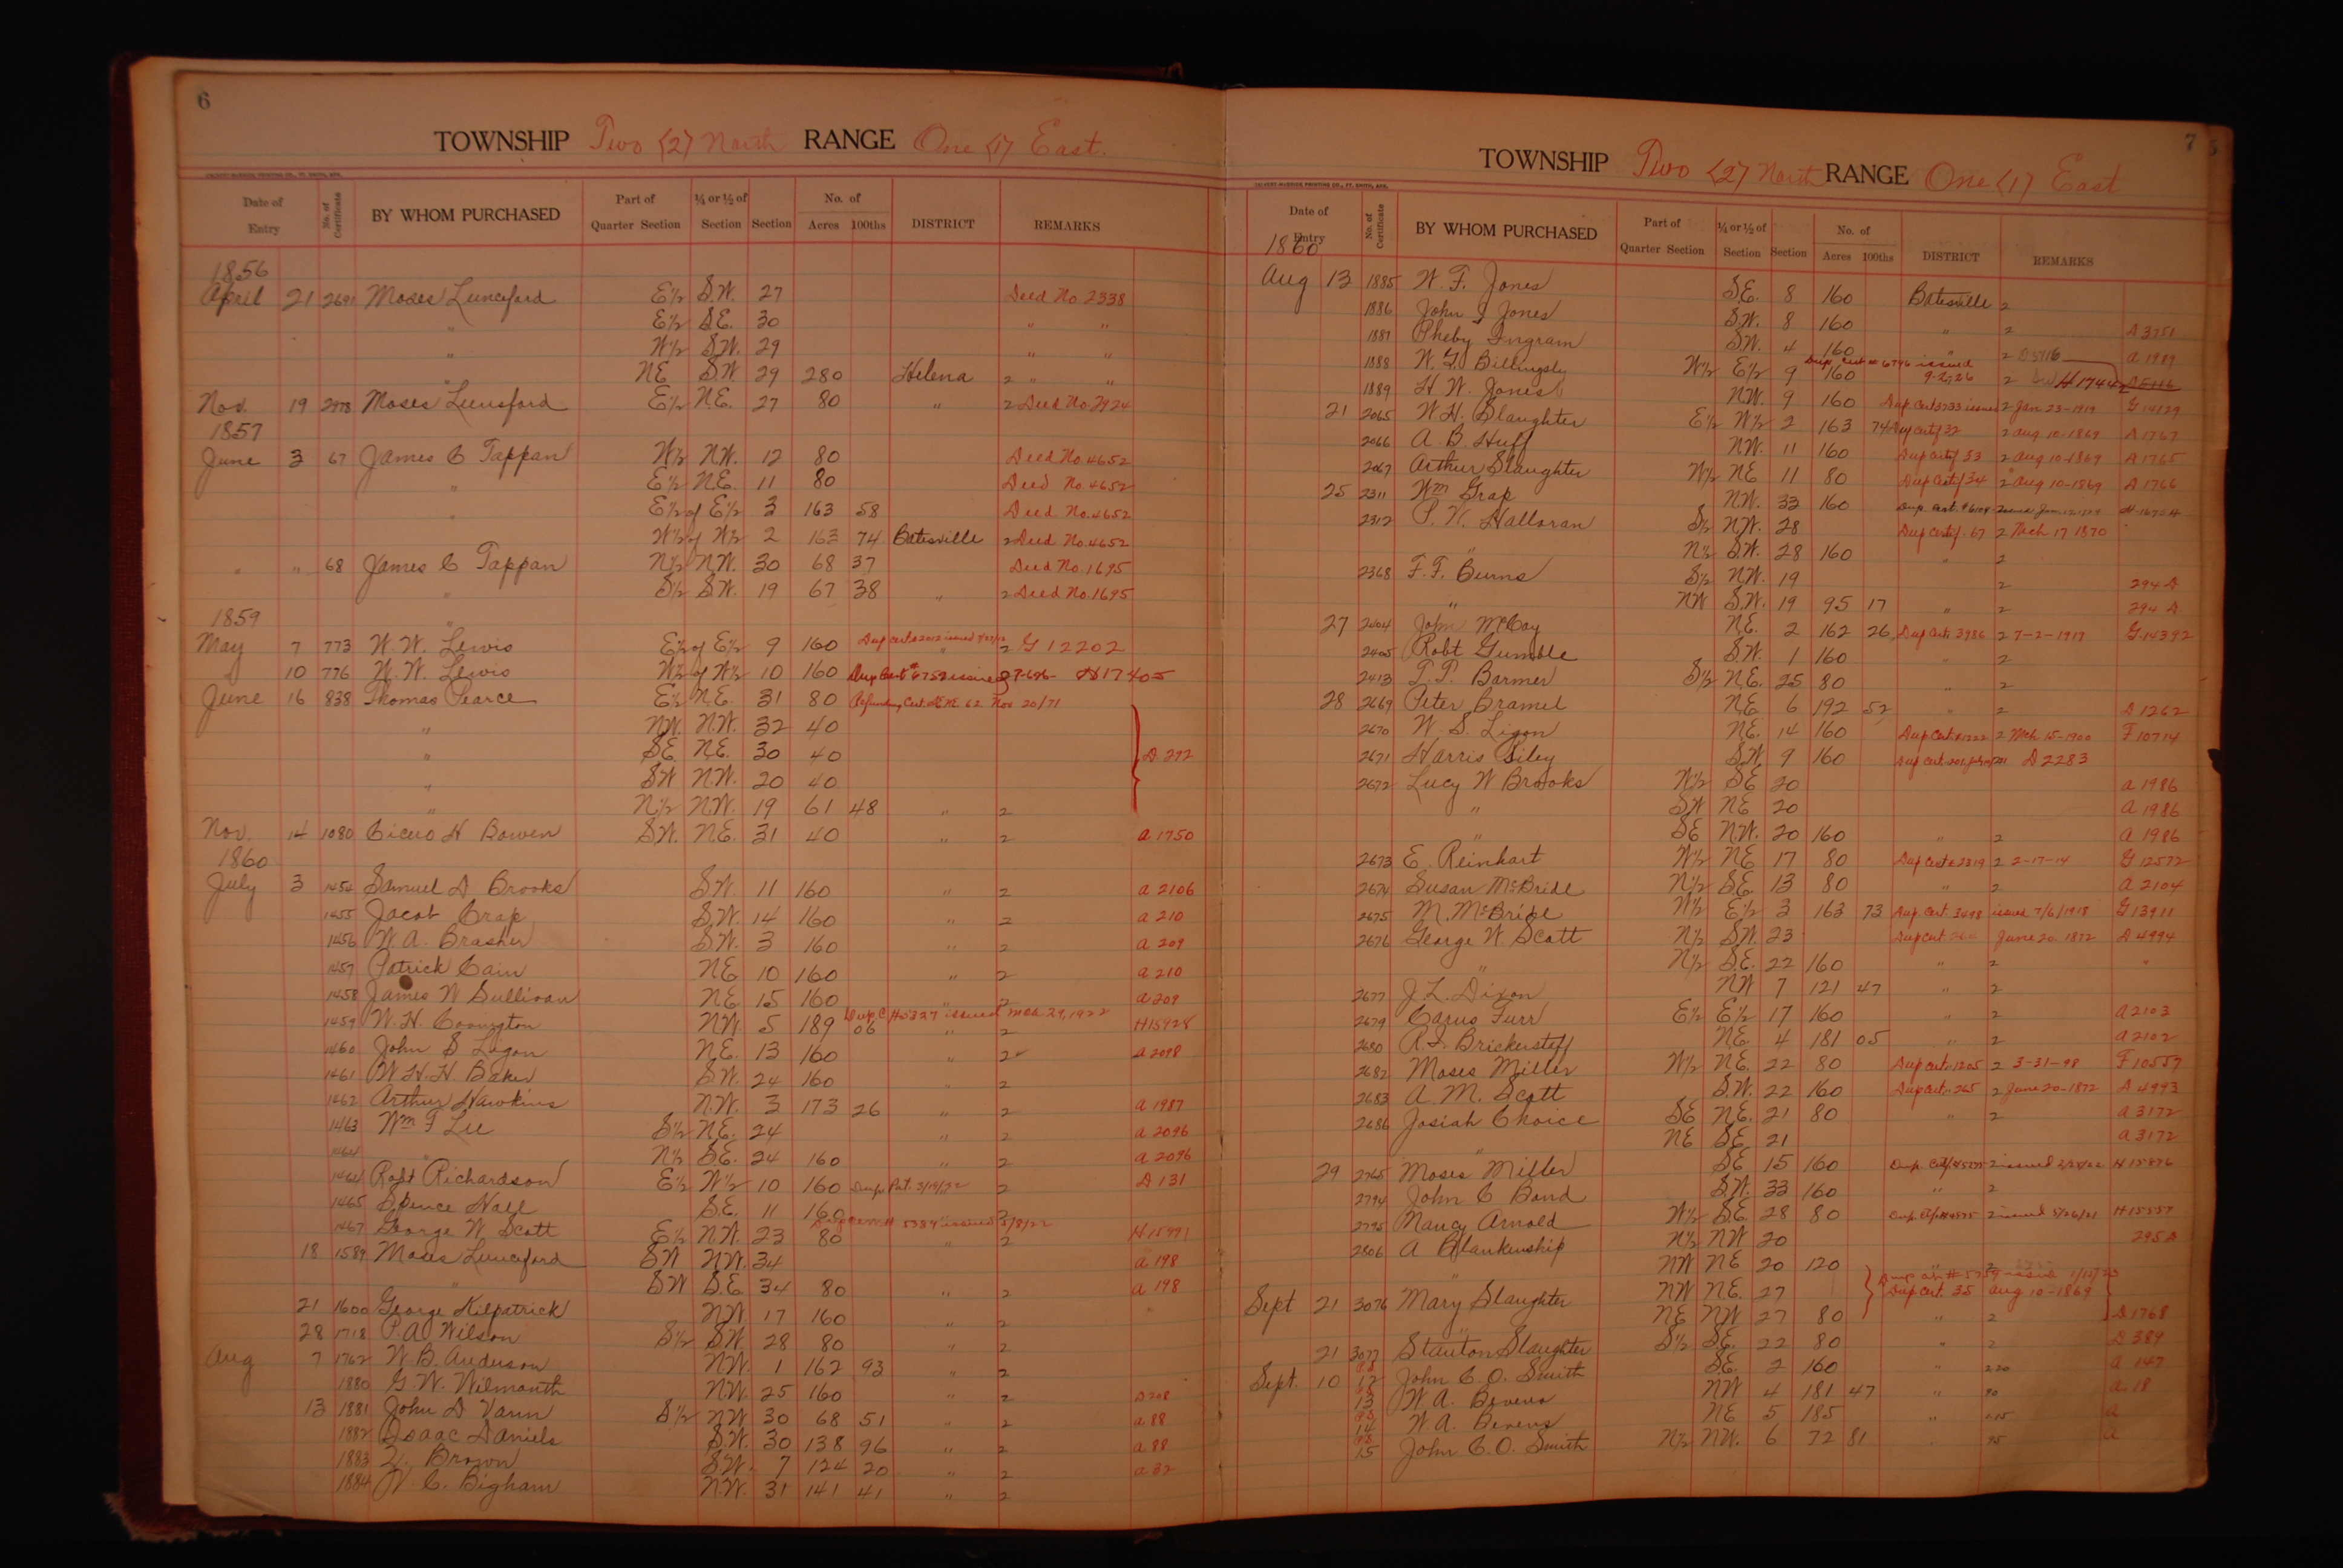 6
TOWNSHIP Two (2) North RANGE One (1) East.
CALVERT-McBRIDE PRINTING CO., FT. SMITH, ARK.
Date of Entry No. of Certificate BY WHOM PURCHASED Part of Quarter Section ¼ or ½ of Section Section No. of Acres 100ths DISTRICT REMARKS
1856
April 21 2691 Moses Lunceford E½ S.W. 27 Deed No. 2338
" E½ S.E. 30 " "
" W½ S.W. 29 " "
" NE S.W. 29 280 Helena 2 " "
Nov. 19 2978 Moses Lunsford E½ N.E. 27 80 " 2 Deed No. 2924
1857
June 3 67 James C Tappan W½ N.W. 12 80 Deed No. 4652
" E½ N.E. 11 80 Deed No 4652
" E½ of E½ 3 163 58 Deed No. 4652
W½ of W½ 2 163 74 Batesville 2 Deed No. 4652
" " 68 James C Tappan N½ N.W. 30 68 37 Deed No. 1695
" S½ S.W. 19 67 38 " 2 Deed No. 1695
1859 "
May 7 773 W. W. Lewis E½ of E½ 9 160 " 2 G 12202
10 776 W. W. Lewis W½ of W½ 10 160 Dup Cert # 6759 issued H17405
June 16 838 Thomas Pearce E½ N.E. 31 80 Refunding Cert. No. M. 62 Nov 20/71
" NW. N.W. 32 40
" SE N.E. 30 40 D 292
" SW N.W. 20 40
" N½ N.W. 19 61 48 " 2
Nov. 14 1080 Cicero H Bowen SW. N.E. 31 40 " 2 a 1750
1860
July 3 1454 Samuel D Brooks S.W. 11 160 " 2 a 2106
1455 Jacob Crap S.W. 14 160 " 2 a 210
1456 W. A. Brasher S.W. 3 160 " 2 a 209
1457 Patrick Cain N.E. 10 160 " 2 a 210
1458 James W Sullivan N.E. 15 160 " 2 a 209
1459 W. H. Covington N.W. 5 189 06 " 2 H15928
1460 John S Logan N.E. 13 160 " 2 a 2098
1461 W. H. H. Baker S.W. 24 160 " 2
1462 Arthur Hawkins N.W. 3 173 26 " 2 a 1987
1463 Wm F Lee S½ N.E. 24 " 2 a 2096
1464 " N½ S.E. 24 160 " 2 a 2096
1464 Robt Richardson E½ W½ 10 160 2 D 131
1465 Spence Hall S.E. 11 160 2
1467 George W. Scott E½ N.W. 23 80 " 2 H15991
18 1589 Moses Lunceford SW N.W. 34 a 198
" SW S.E. 34 80 " 2 a 198
21 1600 George Kilpatrick NW 17 160 " 2
28 1718 P. A. Wilson S½ S.W. 28 80 " 2
Aug 7 1762 W. B. Anderson N.W. 1 162 93 " 2
1880 G. W. Wilmouth N.W. 25 160 " 2 D 208
13 1881 John D Vann S½ N.W. 30 68 51 " 2 a 88
1882 Isaac Daniels S.W. 30 138 96 " 2 a 88
1883 Z. Brown S.W. 7 124 20 " 2 a 32
1884 W. C. Bigham N.W. 31 141 41 " 2
7
TOWNSHIP Two (2) North RANGE One (1) East
CALVERT-McBRIDE PRINTING CO., FT. SMITH, ARK.
Date of Entry No. of Certificate BY WHOM PURCHASED Part of Quarter Section ¼ or ½ of Section Section No. of Acres 100ths DISTRICT REMARKS
1860
Aug 13 1885 W. F. Jones S.E. 8 160 Batesville 2
1886 John J Jones S.W. 8 160 " 2 D 3751
1887 Pheby Ingram S.W. 4 160 " 2 a 1989
1888 W. G. Billingsly W½ E½ 9 160 Dup. Cert # 6796 issued 9-2-26 2 H17442
1889 H. W. Jones N.W. 9 160 Dup. Cert 3733 issued 2 Jan 23-1919 G 14129
21 2065 W. H. Slaughter E½ W½ 2 163 74 Dup Certf 32 2 Aug 10-1869 D 1767
2066 A. B. Huff N.W. 11 160 Dup Certf 33 2 Aug 10-1869 D 1765
2067 Arthur Slaughter W½ NE 11 80 Dup Certf 34 2 Aug 10-1869 D 1766
25 2311 Wm Grap N.W. 33 160
2312 P. W. Halloran S½ N.W. 28 Dup Certf. 67 2 Mch 17 1870
" N½ S.W. 28 160 " 2
2368 F. F. Burns S½ N.W. 19 2 294 D
" NW S.W. 19 95 17 " 2 294 D
27 2404 John McCoy N.E. 2 162 26 Dup Cert. 3986 2 7-2-1917 G 14392
2405 Robt Gumble S.W. 1 160 " 2
2413 T. P. Barmer S½ N.E. 25 80 " 2
28 2669 Peter Bramel N.E. 6 192 52 " 2 D 1262
2670 W. S. Ligon N.E. 14 160 Dup Cert. 1222 2 Mch 15-1900 F 10714
2671 Harris Siley S.W. 9 160 D 2283
2672 Lucy W Brooks W½ SE 20 a 1986
" SW NE 20 a 1986
" SE N.W. 20 160 " 2 a 1986
2673 E. Reinhart W½ NE 17 80 Dup Cert 2819 2 2-17-14 G 12572
2674 Susan McBride N½ S.E. 13 80 " 2 a 2104
2675 M. McBride W½ E½ 3 163 73 Dup Cert. 3498 issued 7/6/1918 G 13911
2676 George W Scott N½ S.W. 23 Dup Cert June 20. 1872 D 4994
" N½ S.E. 22 160 " 2 "
2677 J. L. Dixon NW 7 121 47 " 2
2679 Carus Furr E½ E½ 17 160 " 2 a 2103
2680 R. S. Brickerstaff N.E. 4 181 05 " 2 a 2102
2682 Moses Miller W½ N.E. 22 80 Dup Cert. 1205 2 3-31-98 F 10557
2683 A. M. Scott S.W. 22 160 Dup Cert. 265 2 June 20-1872 D 4993
2686 Josiah Choice SE N.E. 21 80 " 2 a 3172
" NE S.E. 21 a 3172
29 2765 Moses Miller SE 15 160 H 15876
2794 John C Bond S.W. 33 160 " 2
2795 Nancy Arnold W½ S.E 28 80 2 issued 5/26/21 H 15557
2806 A Blankenship N½ NW 20 295 D
" NW NE 20 120 " 2
Sept 21 3076 Mary Slaughter NW N.E. 27 Dup Cert. 35 Aug 10-1869
" NE NW 27 80 " 2 D 1768
21 3077 Stanton Slaughter S½ S.E. 22 80 " 2 D 389
Sept. 10 12 John C. O. Smith S.E. 2 160 " 2 20 a 147
13 W. A. Bevens NW 4 181 47 " 90 a 18
14 W. A. Bevens NE 5 185 " a
15 John C. O. Smith N½ NW. 6 72 81 95 a